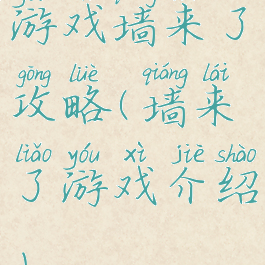 游戏墙来了
gōng lüè qiáng lái
攻略(墙来
liǎo yóu xì jiè shào
了游戏介绍
)